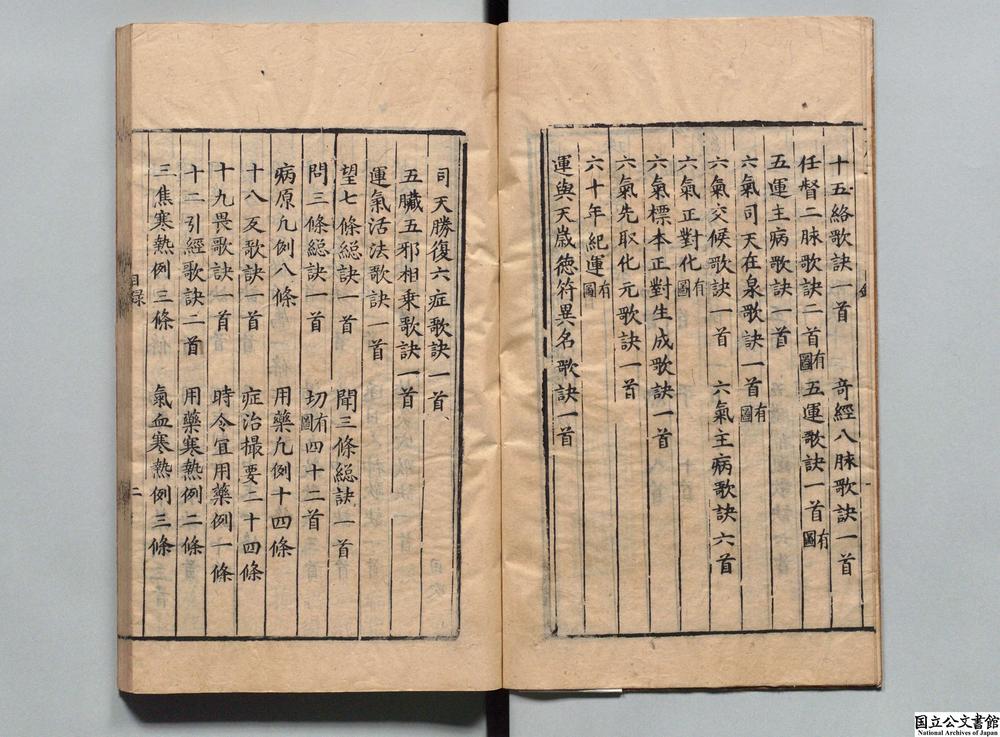 十五絡歌訣一首　奇經八脉歌訣一首
任督二脉歌訣二首有圖　五運歌訣一首有圖
五運主病歌訣一首
六氣司天在泉歌訣一首有圖
六氣交候歌訣一首　六氣主病歌訣六首
六氣正對化有圖
六氣標本正對生成歌訣一首
六氣先取化元歌訣一首
六十年紀運有圖
運與天歲徳符異名歌訣一首
司天勝復六症歌訣一首
五臟五邪相乗歌訣一首
運氣活法歌訣一首
望七條総訣一首　聞三條総訣一首
問三條総訣一首　切有圖四十二首
病原九例八條　用藥九例十四條
十八反歌訣一首　症治撮要二十四條
十九畏歌訣一首　時令宜用藥例一條
十二引經歌訣二首　用藥寒熱例二條
三焦寒熱例三條　氣血寒熱例三條
目録　二
国立公文書館
National Archives of Japan